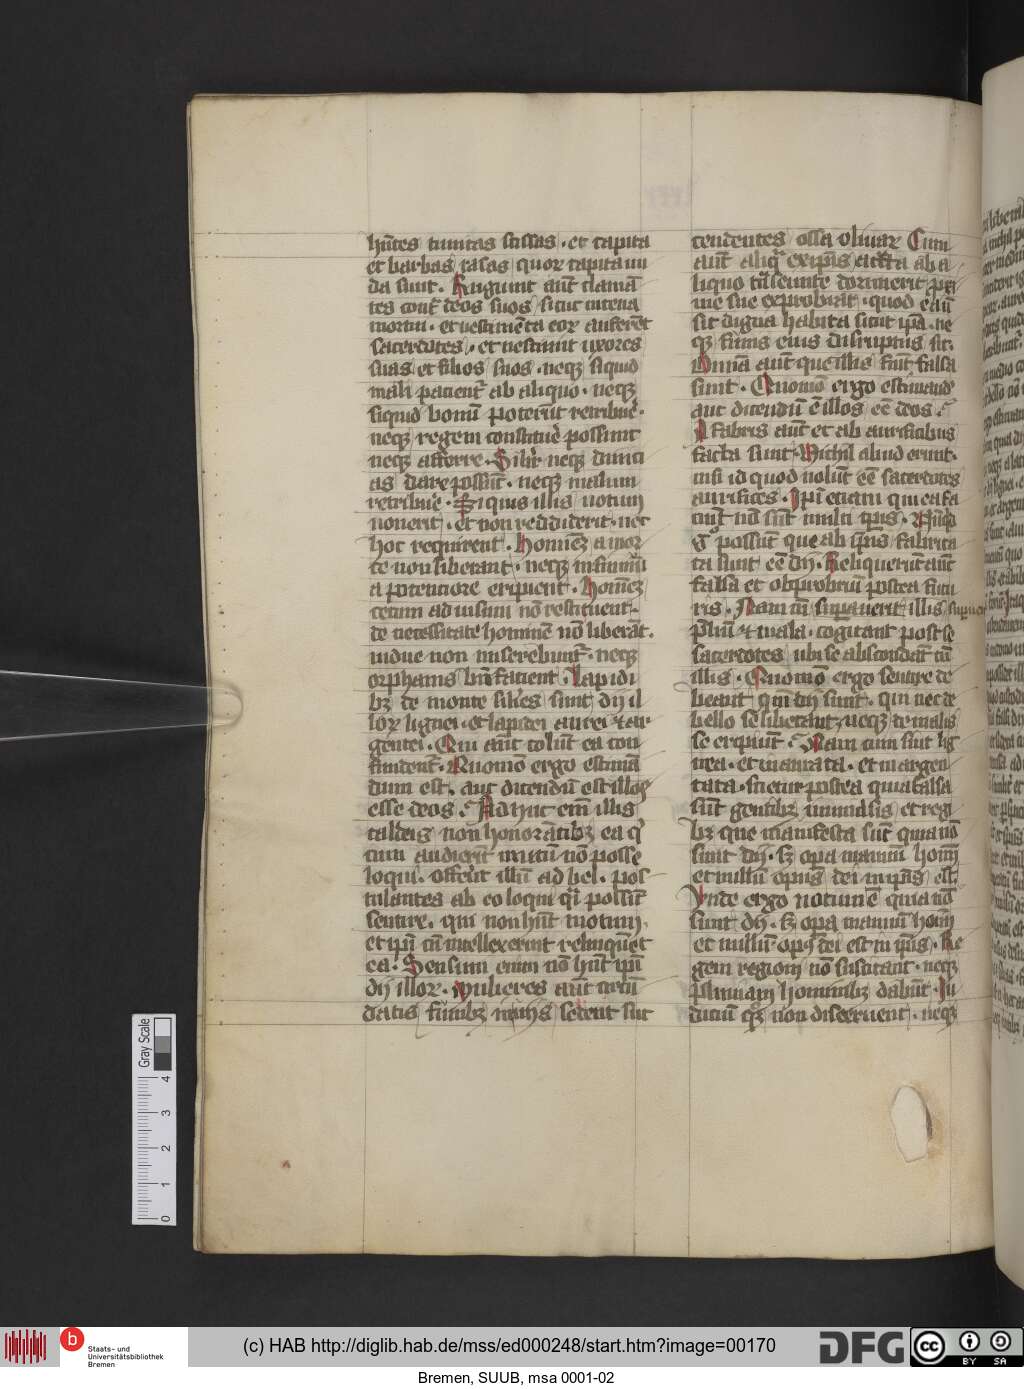 hñtes tunicas scissas · et capita
et barbas rasas quoꝝ capita nu
da sunt · Rugiunt aũt clamã
tes contͣ deos suos sicut in cena
mortui · et vestimẽta eoꝝ auferẽt
sacerdotes · et vestiunt uxores
suas et filios suos · neqꝫ siquid
mali pacientͬ ab aliquo · neqꝫ
siquid bonũ poterũt retribuẽ ·
neqꝫ regem constituẽ possunt
neqꝫ afferre · Silr̃ neqꝫ diuici
as dare possũt · neqꝫ malum
retribuẽ · Si quis illis uotum
uouerit · et non reddiderit · nec
hoc requirent · Hominẽ a mor
te non liberant · neqꝫ infirmũ
a potentiore eripient · Hominẽ
cecum ad uisum nõ restituent ·
de necessitate hominẽ nõ liberãt ·
uidue non miserebuntͬ · neqꝫ
orphanis bñ facient · Lapidi
bꝫ de monte siles̃ sunt dij il
loꝝ lignei · et lapidei aurei et ar
gentei · Qui aũt colũt ea con
fundentͬ · Quomõ ergo estimã
dum est · aut dicendum est illos
esse deos · Adhuc em̃ illis
caldeis non honorãtibꝫ ea qͥ
cum audierĩt mutũ nõ posse
loqui · offerũt illũ ad bel · pos
tulantes ab eo loqui qͣi possint
sentire · qui non hñt motum ·
et ipĩ cũ intellexerint relinquẽt
ea · Sensum enim nõ hñt ipĩ
dij illoꝝ · Mulieres aũt circũ
datis funibꝫ in vijs sedent suc
cendentes ossa oliuaꝝ Cum
aũt aliqͣ ex ipĩs attracta ab a
liquo tñseunte dormierit proxi
me sue exprobrat · quod ea nõ
sit digna habita sicut ipã · ne
qꝫ funis eius disruptus sit ·
Omnia aũt que illis fiũt falsa
sunt · Quomõ ergo estimandũ
aut dicendũ ẽ illos eẽ deos ·
A fabris aũt et ab aurificibus
facta sunt · Nichil aliud erunt ·
nisi id quod uolũt eẽ sacerdotes
aurifices · Ipĩ etiam qui ea fa
ciũt nõ sũt multi tp̃is · Nũqͥd
gͦ possũt que ab ipĩs fabrica
ta sunt eẽ dij · Reliquerũt aũt
falsa et obprobriũ postea futu
ris · Nam cũ supuenerit illis
prelium et mala · cogitant post se
sacerdotes ubi se abscondãt cũ
illis · Quomõ ergo sentire de
beant qm̃ dij sunt · qui nec de
bello se liberant neqꝫ de malis
se eripiũt · Nam cum sint lig
nea · et inaurata · et inargen
tata · scietur postea quia falsa
sũt gentibꝫ uniuersis et regi
bꝫ que manifesta sũt quia nõ
sunt dij · sꝫ opa manuũ hom̃
et nullũ opus dei in ipĩs est ·
Vnde ergo notum ẽ quia nõ
sunt dij · sꝫ opa manuũ hom̃
et nullũ opꝰ dei est in ipĩs · Re
gem regioni nõ suscitant · neqꝫ
pluuiam hominibꝫ dabũt · Iu
dicium qͦꝫ non discernent · neqꝫ
Gray Scale
0 1 2 3 4
b
Staats- und
Universitätsbibliothek
Bremen
(c) HAB http://diglib.hab.de/mss/ed000248/start.htm?image=00170
DFG
cc BY SA
Bremen, SUUB, msa 0001-02